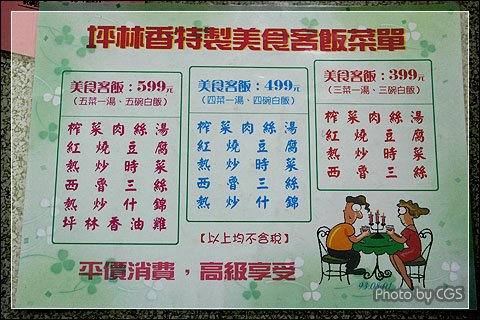 坪林香特製美食客飯菜單
美食客飯：599元
（五菜一湯、五碗白飯）
榨菜肉絲湯
紅燒豆腐
熱炒時菜
西魯三絲
熱炒什錦
坪林香油雞
美食客飯：499元
（四菜一湯、四碗白飯）
榨菜肉絲湯
紅燒豆腐
熱炒時菜
西魯三絲
熱炒什錦
美食客飯：399元
（三菜一湯、三碗白飯）
榨菜肉絲湯
紅燒豆腐
熱炒時菜
西魯三絲
【以上均不含稅】
平價消費，高級享受
Photo by CGS